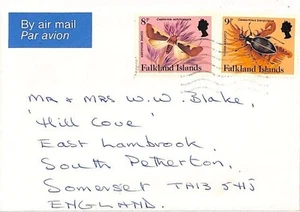 By air mail
Par avion
8p
Falkland Islands
9p
Falkland Islands
MR & MRS W.W. Blake,
'Hill Cove'
East Lambrook,
South Petherton,
Somerset TA13 5HJ
ENGLAND.